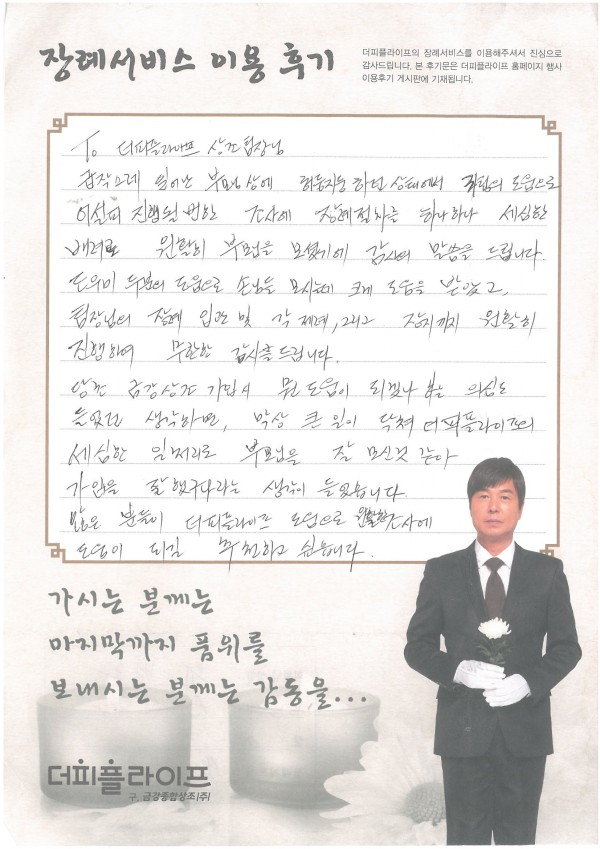 장례서비스 이용 후기
더피플라이프의 장례서비스를 이용해주셔서 진심으로
감사드립니다. 본 후기문은 더피플라이프 홈페이지 행사
이용후기 게시판에 기재됩니다.
To 더피플라이프 상조팀장님
갑작스레 일어난 부모님상에 허둥지둥 하던 상태에서 도움으로
어설피 진행될 뻔한 조사에 장례절차를 하나하나 세심한
배려로 원활히 부모님을 모셨기에 감사의 말씀을 드립니다.
도우미 두분의 도움으로 손님들 모시는데 크게 도움을 받았고,
팀장님의 장례 입관 및 각 제례, 그리고 장지까지 원활히
진행하여 무한한 감사를 드립니다.
당초 금강상조 가입시 뭔 도움이 되겠나 하는 의심도
들었다 생각하면, 막상 큰 일이 닥쳐 더피플라이프의
세심한 일처리로 부모님을 잘 모신것 같아
가입을 잘했구나라는 생각이 들었습니다.
많은 분들이 더피플라이프 도움으로 원활한 조사에
도움이 되길 추천하고 싶습니다.
가시는 분께는
마지막까지 품위를
보내시는 분께는 감동을...
더피플라이프
구. 금강종합상조(주)